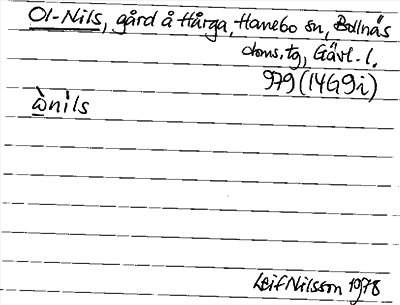 Ol-Nils, gård å Hårga, Hanebo sn, Bollnäs
doms.tg, Gävl. l.
979 (14G9i)
ὼnìls
Leif Nilsson 1978